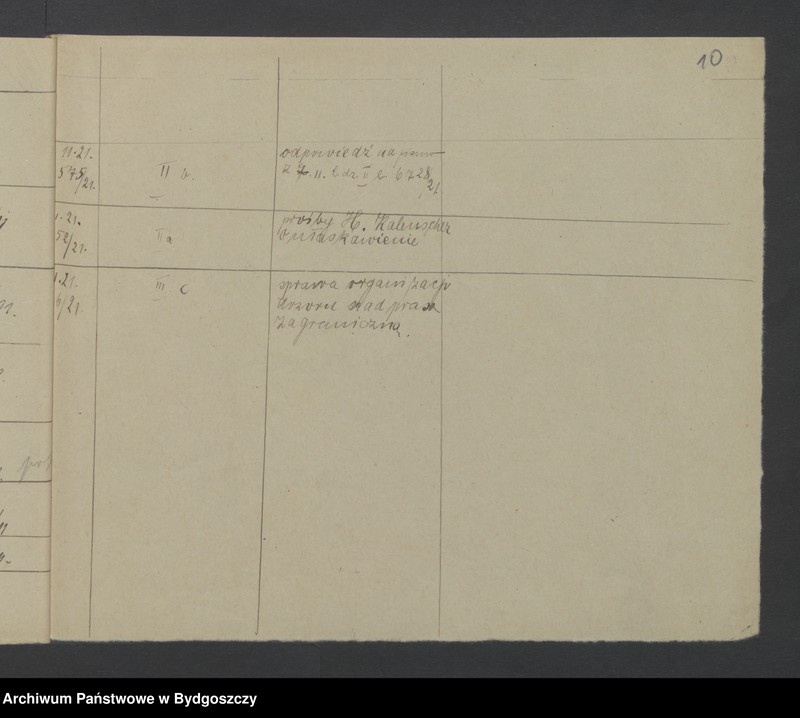 10
11.21.
575/21.
II b.
odpowiedź na pismo
z 7. 11. l. dz. II b 6728/21
1.21.
52/21.
II a
prośby H. Kaleuscher
o ułaskawienie
1.21.
6/21.
III c
sprawa organizacji
dozoru nad prasą
zagraniczną.
Archiwum Państwowe w Bydgoszczy